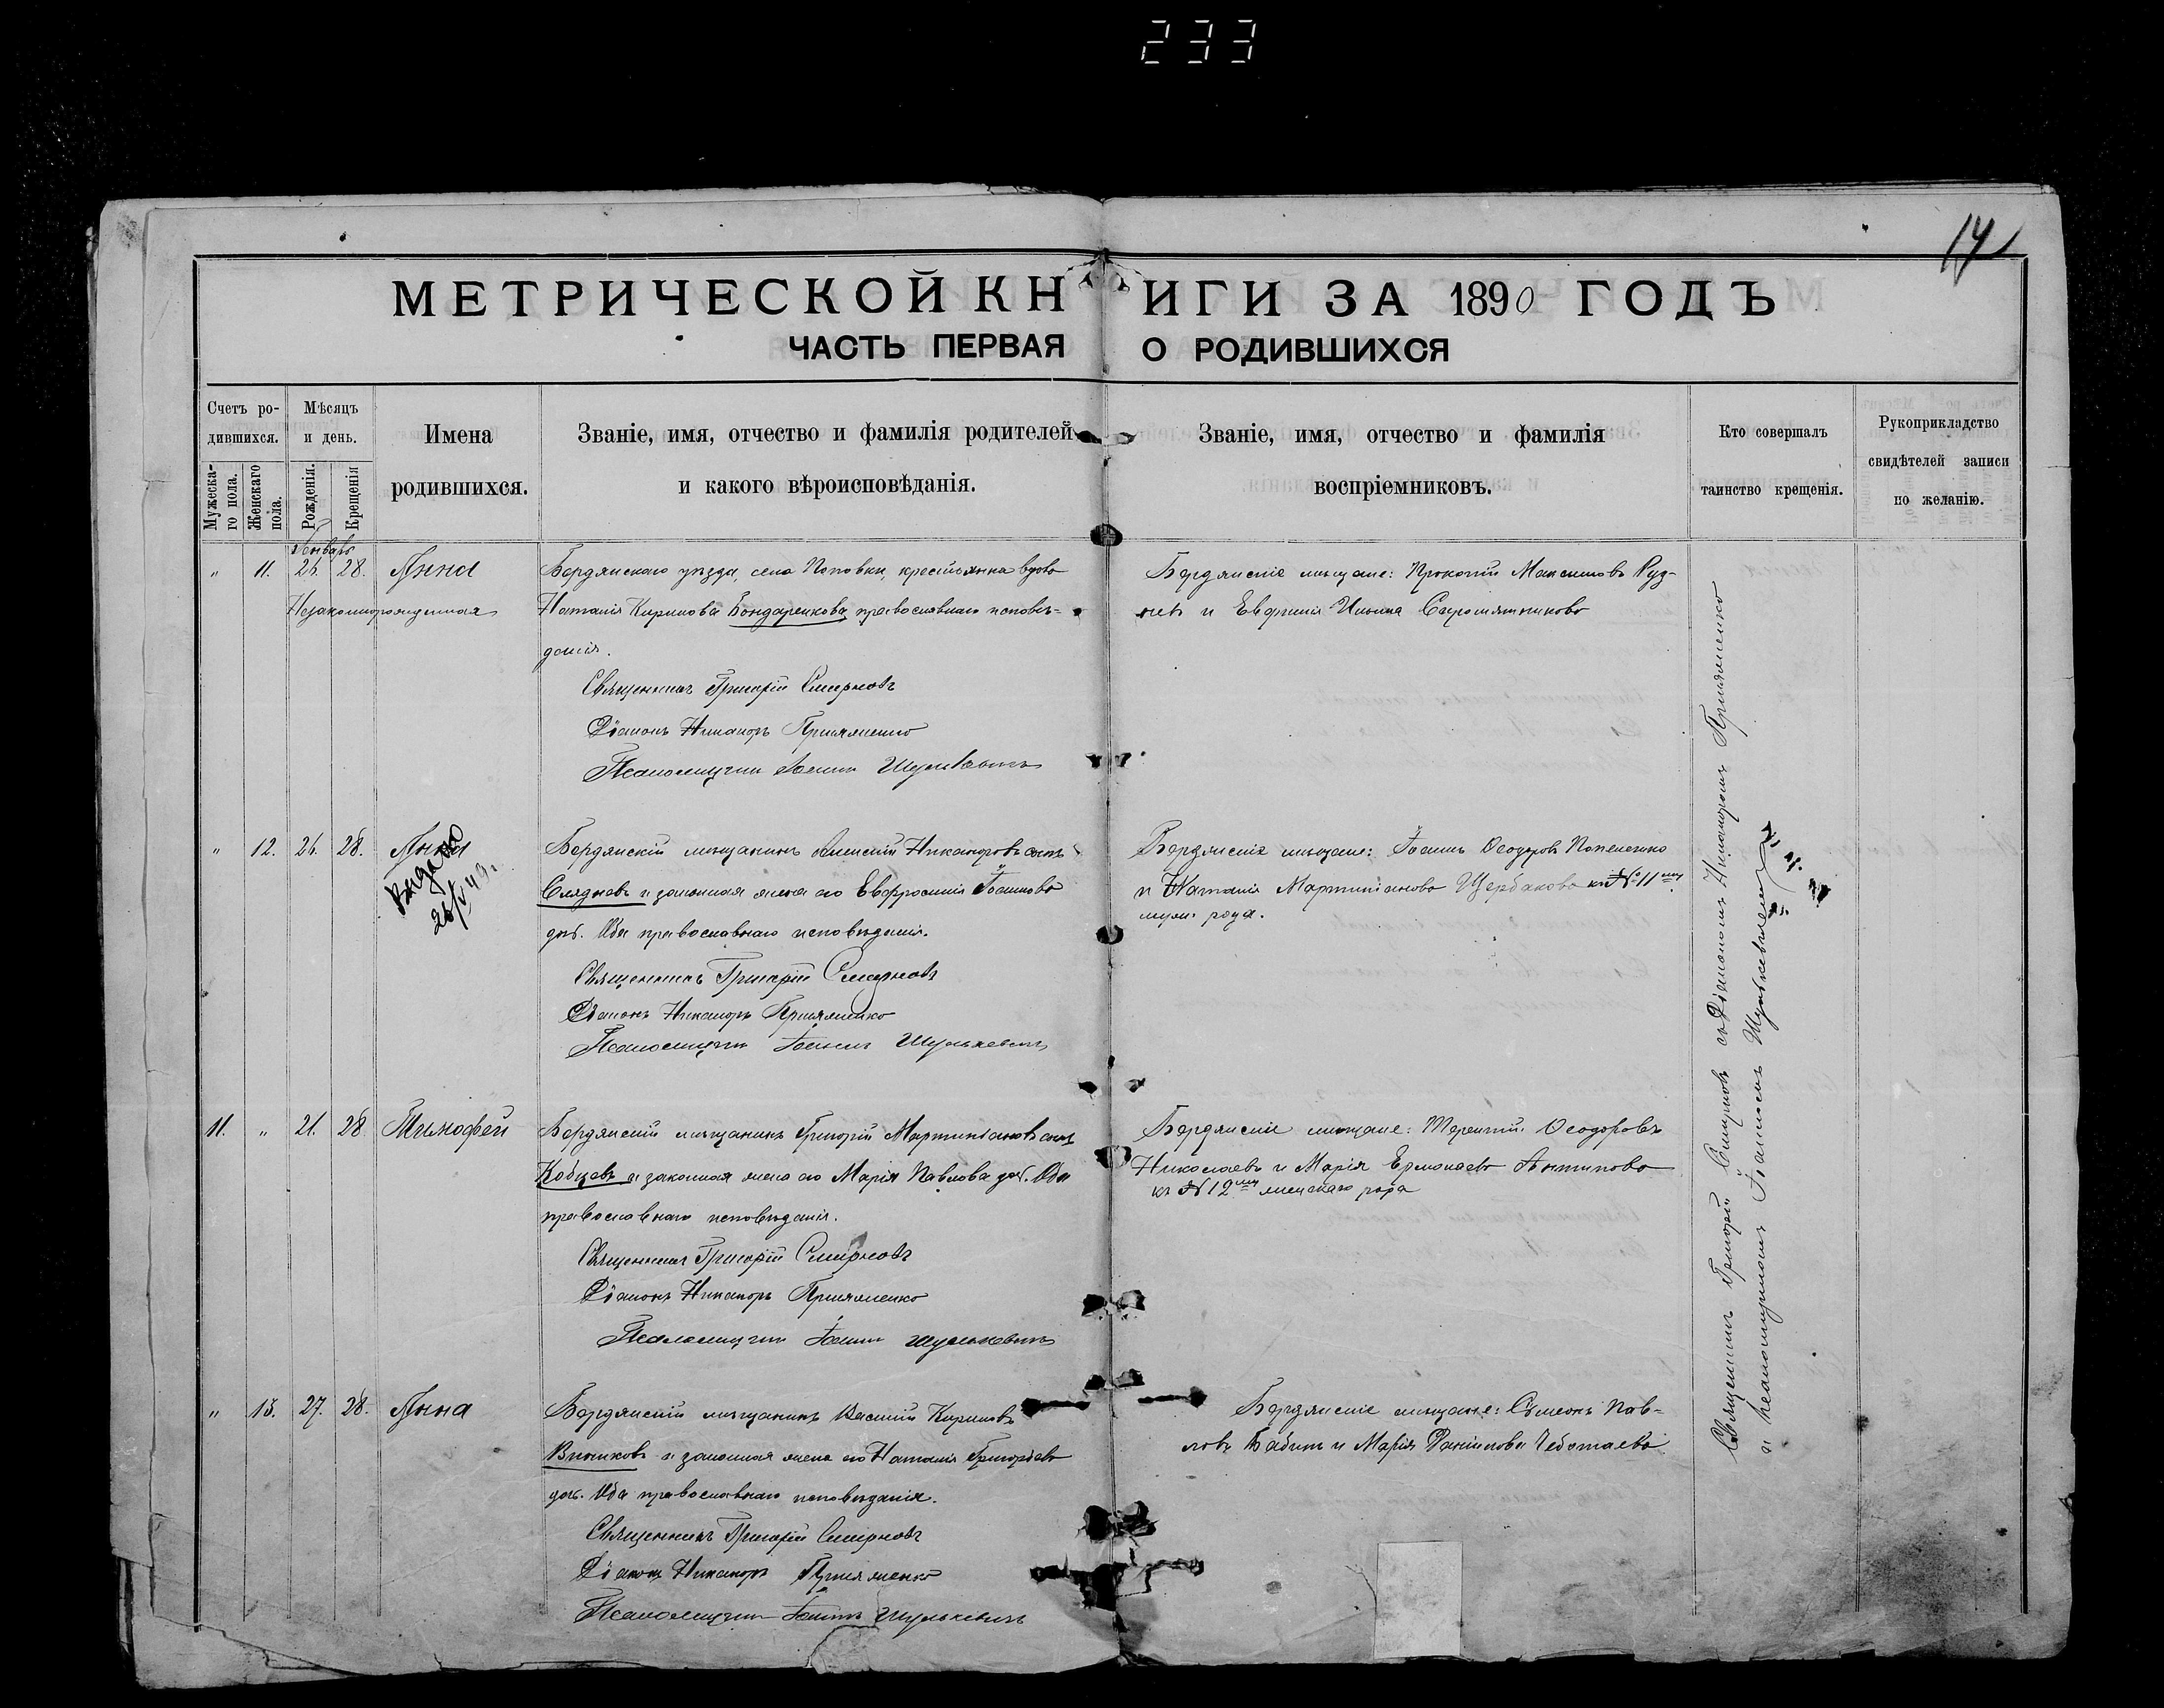 233
141
МЕТРИЧЕСКОЙ КНИГИ ЗА 1890 ГОДЪ
ЧАСТЬ ПЕРВАЯ О РОДИВШИХСЯ
Счетъ ро-
дившихся.
Мужеска-
го пола.
Женскаго
пола.
Мѣсяцъ
и день.
Рожденія.
Крещенія
Имена
родившихся.
Званіе, имя, отчество и фамилія родителей
и какого вѣроисповѣданія.
Званіе, имя, отчество и фамилія
воспріемниковъ.
Кто совершалъ
таинство крещенія.
Рукоприкладство
свидѣтелей записи
по желанію.
Январь
" 11. 26. 28. Анна
Незаконнорожденная
Бердянскаго уѣзда, села Поповки, крестьянка вдова
Наталія Кирилова Бондаренкова православнаго исповѣ-
данія.
Священникъ Григорій Смирновъ
Діаконъ Никаноръ Прияженко
Псаломщикъ Іоаннъ Шулькевичъ
Бердянскіе мѣщане: Прокопій Максимовъ Руд-
невъ и Евфимія Ильина Сыромятникова
" 12. 26. 28. Анна
Видано
26/V 49.
Бердянскій мѣщанинъ Алексій Никаноровъ сынъ
Слядневъ и законная жена его Евфросинія Іоаннова
доч. Оба православнаго исповѣданія.
Священникъ Григорій Смирновъ
Діаконъ Никаноръ Прияженко
Псаломщикъ Іоаннъ Шулькевичъ
Бердянскіе мѣщане: Іоаннъ Ѳеодоровъ Попеленко
и Наталія Мартиніанова Щербакова къ № 11му
муж. рода.
11. " 21. 28. Тимофей
Бердянскій мѣщанинъ Григорій Мартиніановъ сынъ
Кобцевъ и законная жена его Марія Павлова доч. Оба
православнаго исповѣданія.
Священникъ Григорій Смирновъ
Діаконъ Никаноръ Прияженко
Псаломщикъ Іоаннъ Шулькевичъ
Бердянскіе мѣщане: Терентій Ѳеодоровъ
Николаевъ и Марія Ермолаева Антипова
къ № 12му женскаго рода
" 13. 27. 28. Анна
Бердянскій мѣщанинъ Василій Кириловъ
Вноковъ и законная жена его Наталія Григорьева
доч. Оба православнаго исповѣданія.
Священникъ Григорій Смирновъ
Діаконъ Никаноръ Прияженко
Псаломщикъ Іоаннъ Шулькевичъ
Бердянскіе мѣщане: Симеонъ Пав-
ловъ Бабинъ и Марія Даніилова Чеботаева
Священникъ Григорій Смирновъ съ Діакономъ Никаноромъ Прияженко
и псаломщикомъ Іоанномъ Шулькевичемъ